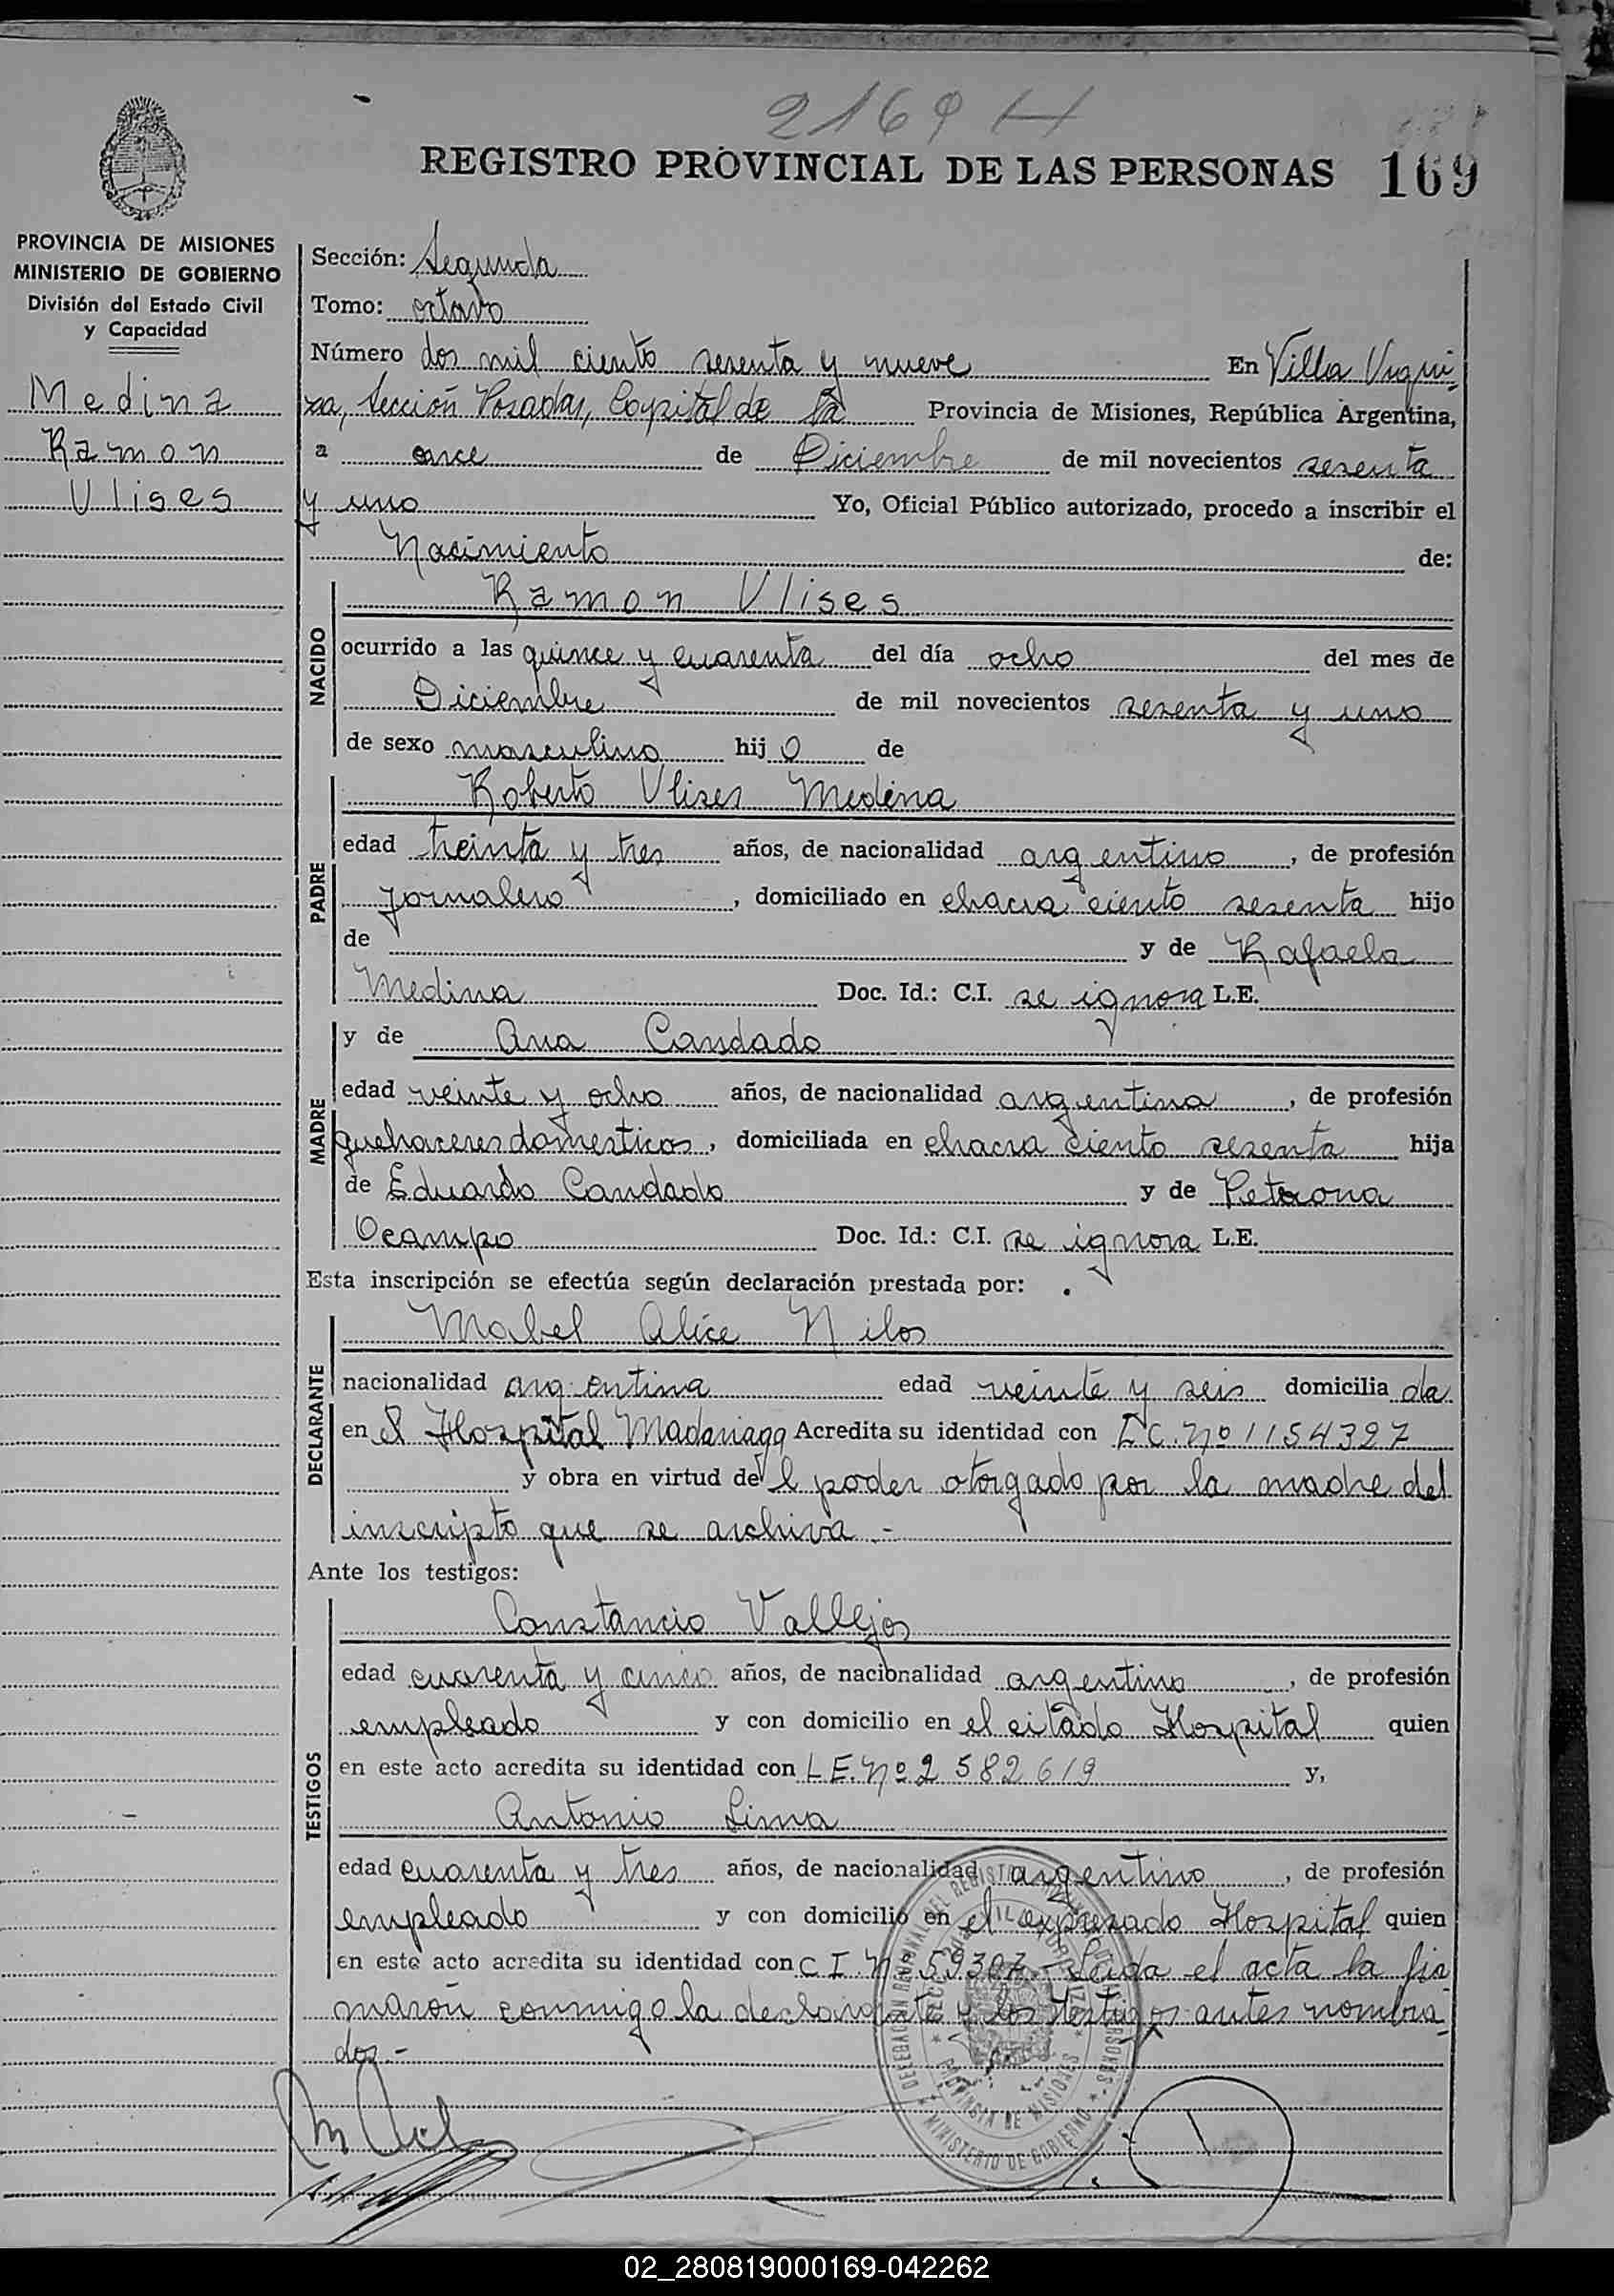 2169 H
REGISTRO PROVINCIAL DE LAS PERSONAS 169
PROVINCIA DE MISIONES
MINISTERIO DE GOBIERNO
División del Estado Civil
y Capacidad
Medina
Ramon
Ulises
Sección: Segunda
Tomo: octavo
Número dos mil ciento sesenta y nueve En Villa Urqui-
za, Sección Posadas, Capital de la Provincia de Misiones, República Argentina,
a once de Diciembre de mil novecientos sesenta
y uno Yo, Oficial Público autorizado, procedo a inscribir el
Nacimiento de:
NACIDO
Ramon Ulises
ocurrido a las quince y cuarenta del día ocho del mes de
Diciembre de mil novecientos sesenta y uno
de sexo masculino hijo de
PADRE
Roberto Ulises Medina
edad treinta y tres años, de nacionalidad argentino, de profesión
Jornalero, domiciliado en chacra ciento sesenta hijo
de y de Rafaela
Medina Doc. Id.: C.I. se ignora L.E.
MADRE
y de Ana Candado
edad veinte y ocho años, de nacionalidad argentina, de profesión
quehaceres domesticos, domiciliada en chacra ciento sesenta hija
de Eduardo Candado y de Petrona
Ocampo Doc. Id.: C.I. se ignora L.E.
Esta inscripción se efectúa según declaración prestada por:
DECLARANTE
Mabel Alice Nilos
nacionalidad argentina edad veinte y seis domiciliada
en el Hospital Madariaga Acredita su identidad con L.C. Nº 1154327
y obra en virtud del poder otorgado por la madre del
inscripto que se archiva.-
Ante los testigos:
TESTIGOS
Constancio Vallejos
edad cuarenta y cinco años, de nacionalidad argentino, de profesión
empleado y con domicilio en el citado Hospital quien
en este acto acredita su identidad con L.E. Nº 2582619 y,
Antonio Lima
edad cuarenta y tres años, de nacionalidad argentino, de profesión
empleado y con domicilio en el expresado Hospital quien
en este acto acredita su identidad con C I Nº 59307.- Leida el acta la fir
maron conmigo la declarante y los testigos antes nombra-
dos.-
PROVINCIA DE MISIONES
MINISTERIO DE GOBIERNO
02_280819000169-042262